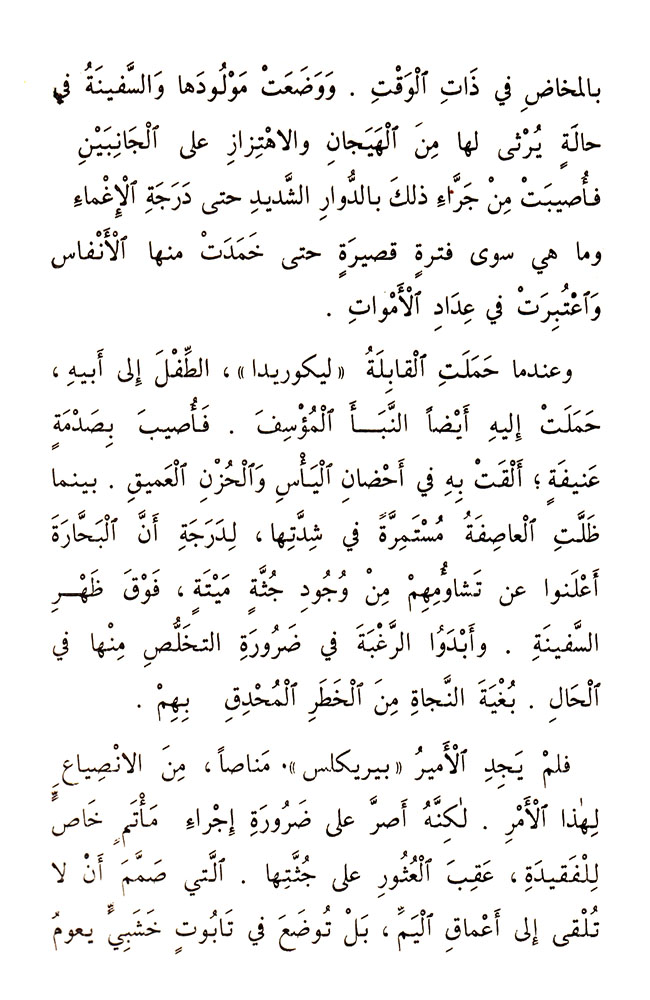 بالمخاضِ في ذَاتِ ٱلْوَقْتِ . وَوَضَعَتْ مَوْلُودَها وَالسَّفينَةُ في
حالَةٍ يُرْثى لها مِنَ ٱلْهَيَجانِ والاهْتِزازِ على ٱلْجَانِبَيْنِ
فأُصيبَتْ مِنْ جَرَّاءِ ذلكَ بالدُّوارِ الشَّديدِ حتى دَرَجَةِ ٱلْإِغْماءِ
وما هي سوى فترةٍ قصيرَةٍ حتى خَمَدَتْ منها ٱلْأَنْفاس
وَٱعْتُبِرَتْ في عِدَادِ ٱلْأَمْواتِ .
وعندما حَمَلَتِ ٱلْقابِلَةُ «ليكوريدا» ، الطِّفْلَ إِلى أَبيهِ ،
حَمَلَتْ إِليهِ أَيْضاً النَّبَـــأَ ٱلْمُؤْسِفَ . فَأُصيبَ بِصَدْمَةٍ
عَنيفَةٍ ؛ أَلْقَتْ بِهِ في أَحْضانِ ٱلْيَأْسِ وَٱلْحُزْنِ ٱلْعَميقِ . بينما
ظَلَّتِ ٱلْعاصِفَةُ مُسْتَمِرَّةً في شِدَّتِها ، لِدَرَجَةِ أَنَّ ٱلْبَحَّارَةَ
أَعْلَنوا عن تَشاؤُمِهِمْ مِنْ وُجُودِ جُثَّةٍ مَيْتَةٍ ، فَوْقَ ظَهْــرِ
السَّفينَةِ . وأَبْدَوُا الرَّغْبَةَ في ضَرُورَةِ التخَلُّصِ مِنْها في
ٱلْحَالِ . بُغْيَةَ النَّجاةِ مِنَ ٱلْخَطَرِ ٱلْمُحْدِقِ بِهِمْ .
فلمْ يَجِدِ ٱلْأَميرُ «بيريكلس» . مَناصاً ، مِنَ الانْصِياعِ
لِهٰذا ٱلْأَمْرِ . لٰكِنَّهُ أَصرَّ على ضَرُورَةِ إِجْراءِ مَأْتَمٍ خَاصٍّ
لِلْفَقيدَةِ ، عَقِبَ ٱلْعُثُورِ على جُثَّتِها . ٱلَّتي صَمَّمَ أَنْ لا
تُلْقى إِلى أَعْماقِ ٱلْيَمِّ ، بَلْ تُوضَعَ في تَابُوتٍ خَشَبِيٍّ يعومُ